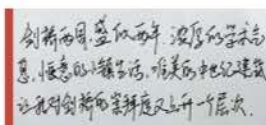 剑桥两周,盛似两年,浓厚的学术气
息,惬意的小镇生活,唯美的中世纪建筑
让我对剑桥的崇拜度又上升一个层次.